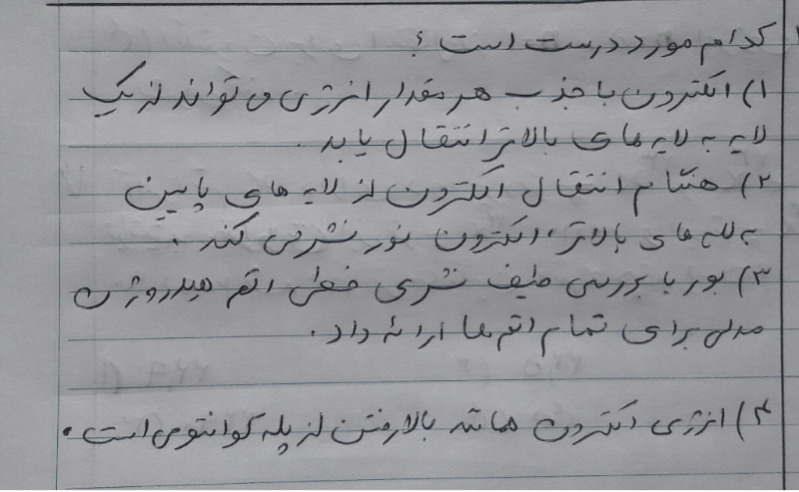 کدام مورد درست است ؟
۱) الکترون با جذب هر مقدار انرژی می تواند از یک
لایه به لایه های بالاتر انتقال یابد.
۲) هنگام انتقال الکترون از لایه های پایین
به لایه های بالاتر، الکترون نور نشر می کند.
۳) بور با بررسی طیف نشری خطی اتم هیدروژن
مدلی برای تمام اتم ها ارائه داد.
۴) انرژی الکترون همانند بالا رفتن از پله کوانتومی است.